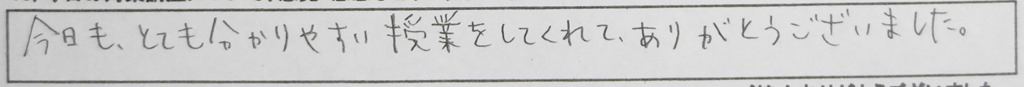 今日も、とても分かりやすい授業をしてくれて、ありがとうございました。